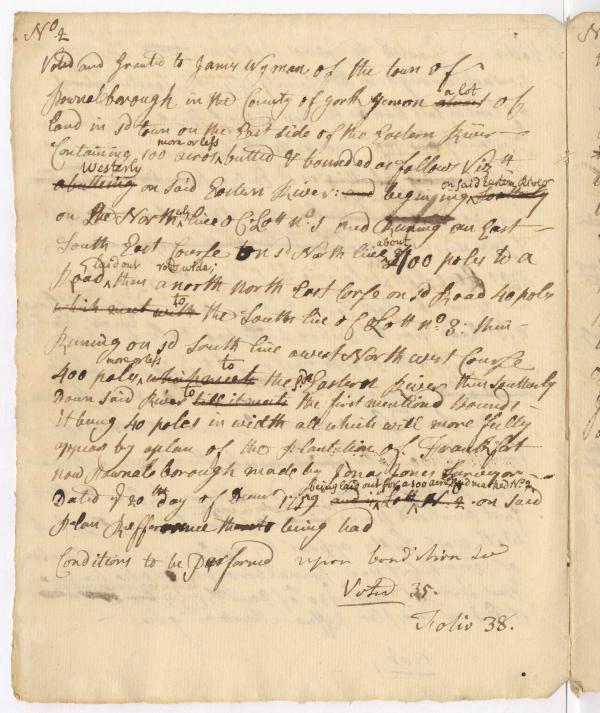 No. 2
Voted and Granted to James Wyman of the town of
Pownalborough in the County of york yeomon a lot of
Land in sd town on the East side of the Eastern River
Containing 100 acres more or less butted & bounded as follows Viz
Westerly on said Eastern River: begining on said Eastern River
on the North line of Lott no. 1 and Runing an East
South East Course on sd North line about 400 poles to a
Road laid out rods wide; then a north north East Corse on sd Road 40 poles
to the South line of Lott no. 3: then
Runing on sd South line a west North west Course
400 poles more or less to the sd Eastern River then Southerly
Down said River to the first mentiond bounds
it being 40 poles in width all which will more fully
appear by a plan of the plantation of Frankfort
now Pownalborough made by Jonas Jones Surveyor
Dated ye 20th day of 1759 being laid out for a 100 acre and marked No. 2 on said
plan Refference thereto being had
Conditions to be Performed upon condition see
Voted 35.
Folio 38.